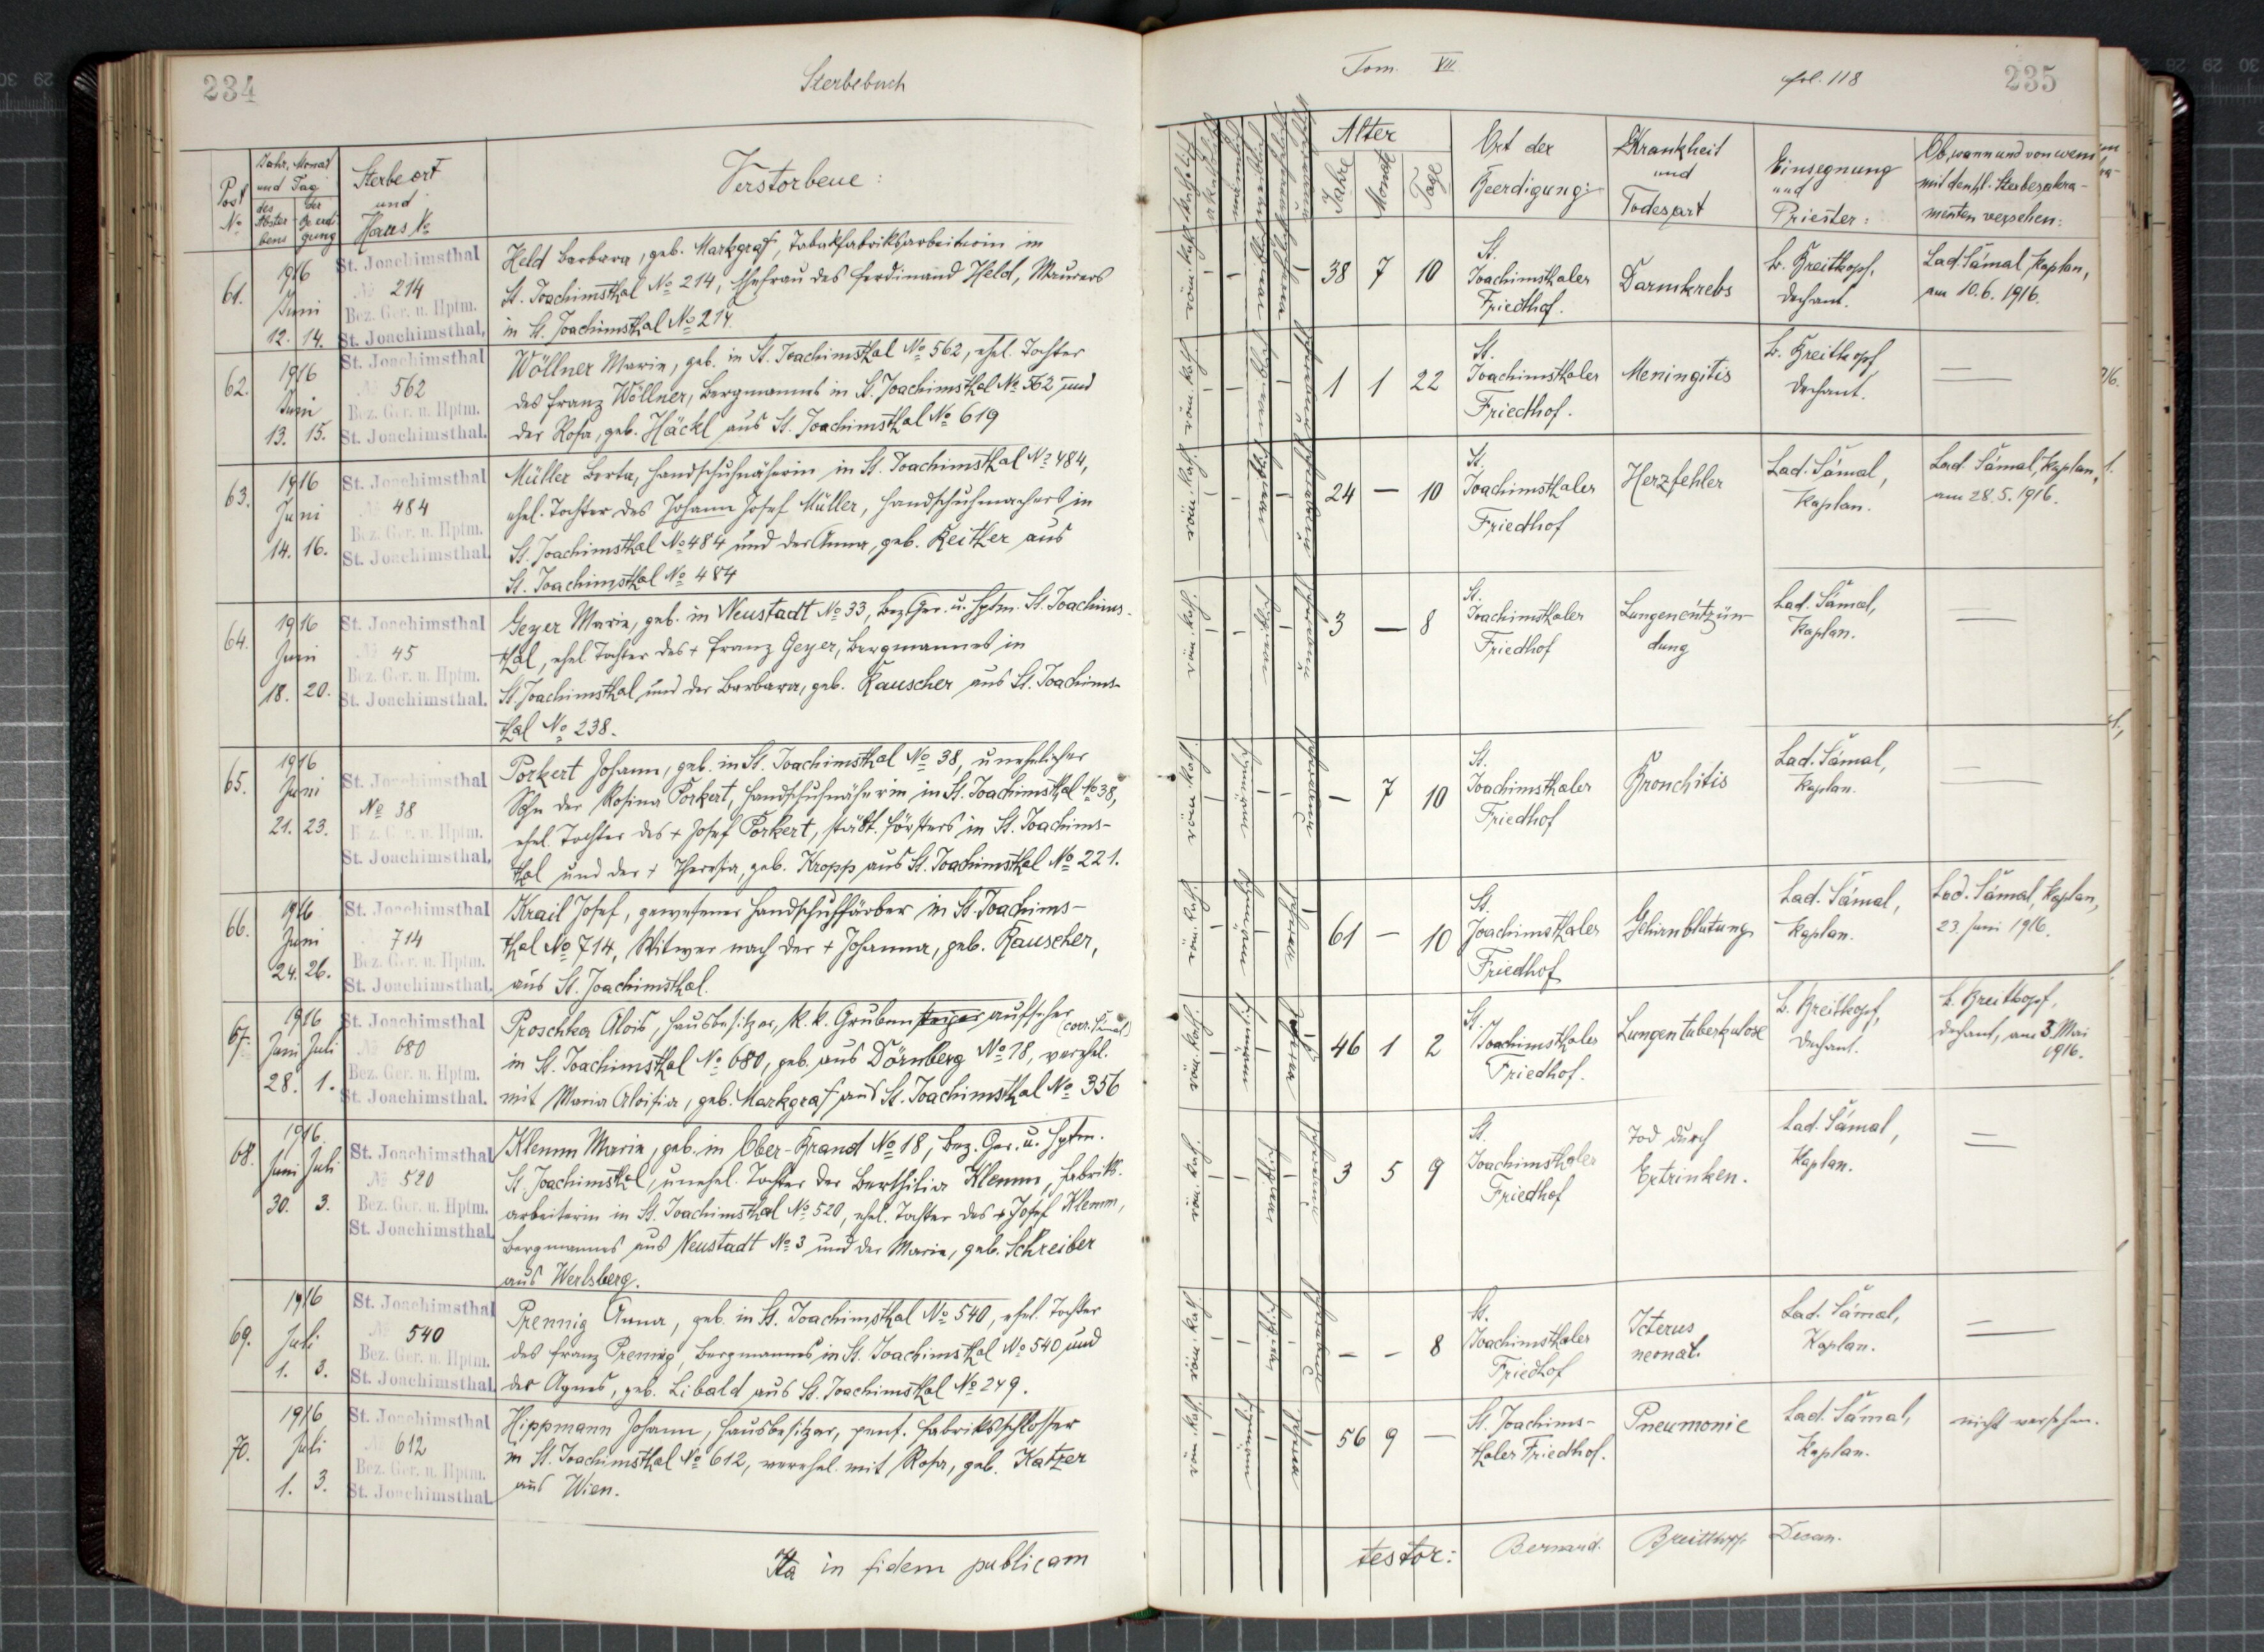 234
Sterbebuch
Post No
Jahr, Monat und Tag
des Absterbens
der Beerdigung
Sterbeort
und
Haus No
Verstorbene:
61.
1916
Juni
12. 14.
St. Joachimsthal
No 214
Bez. Ger. u. Hptm.
St. Joachimsthal.
Held Barbara, geb. Markgraf, Tabakfabriksarbeiterin in
St. Joachimsthal No 214, Ehefrau des Ferdinand Held, Maurers
in St. Joachimsthal No 214.
62.
1916
Juni
13. 15.
St. Joachimsthal
No 562
Bez. Ger. u. Hptm.
St. Joachimsthal.
Wöllner Maria, geb. in St. Joachimsthal No 562, ehel. Tochter
des Franz Wöllner, Bergmannes in St. Joachimsthal No 562 und
der Rosa, geb. Häckl aus St. Joachimsthal No 619
63.
1916
Juni
14. 16.
St. Joachimsthal
484
Bez. Ger. u. Hptm.
St. Joachimsthal.
Müller Berta, Handschuhnäherin in St. Joachimsthal No 484,
ehel. Tochter des Johann Josef Müller, Handschuhmachers in
St. Joachimsthal No 484 und der Anna, geb. Keither aus
St. Joachimsthal No 484
64.
1916
Juni
18. 20.
St. Joachimsthal
No 45
Bez. Ger. u. Hptm.
St. Joachimsthal.
Geyer Maria, geb. in Neustadt No 33, Bez. Ger. u. Hptm. St. Joachims-
thal, ehel. Tochter des + Franz Geyer, Bergmannes in
St. Joachimsthal und der Barbara, geb. Rauscher aus St. Joachims-
thal No 238.
65.
1916
Juni
21. 23.
St. Joachimsthal
No 38
Bez. Ger. u. Hptm.
St. Joachimsthal.
Porkert Johann, geb. in St. Joachimsthal No 38, unehelicher
Sohn der Rosina Porkert, Handschuhnäherin in St. Joachimsthal No 38,
ehel. Tochter des + Josef Porkert, städt. Försters in St. Joachims-
thal und der + Theresia, geb. Kropp aus St. Joachimsthal No 221.
66.
1916
Juni
24. 26.
St. Joachimsthal
714
Bez. Ger. u. Hptm.
St. Joachimsthal.
Krail Josef, gewesener Handschuhfärber in St. Joachims-
thal No 714, Witwer nach der + Johanna, geb. Rauscher,
aus St. Joachimsthal.
67.
1916
Juni Juli
28. 1.
St. Joachimsthal
No 680
Bez. Ger. u. Hptm.
St. Joachimsthal.
Proschka Alois, Hausbesitzer, k. k. Grubensteiger aufseher (corr. Šámal)
in St. Joachimsthal No 680, geb. aus Dörnberg No 18, verehel.
mit Maria Aloisia, geb. Markgraf aus St. Joachimsthal No 356
68.
1916
Juni Juli
30. 3.
St. Joachimsthal
No 520
Bez. Ger. u. Hptm.
St. Joachimsthal.
Klemm Maria, geb. in Ober-Brand No 18, Bez. Ger. u. Hptm.
St. Joachimsthal, unehel. Tochter der Berthilia Klemm, Fabriks-
arbeiterin in St. Joachimsthal No 520, ehel. Tochter des + Josef Klemm,
Bergmannes aus Neustadt No 3 und der Maria, geb. Schreiber
aus Werlsberg.
69.
1916
Juli
1. 3.
St. Joachimsthal
No 540
Bez. Ger. u. Hptm.
St. Joachimsthal.
Prennig Anna, geb. in St. Joachimsthal No 540, ehel. Tochter
des Franz Prennig, Bergmannes in St. Joachimsthal No 540 und
der Agnes, geb. Libald aus St. Joachimsthal No 249.
70.
1916
Juli
1. 3.
St. Joachimsthal
612
Bez. Ger. u. Hptm.
St. Joachimsthal.
Hippmann Johann, Hausbesitzer, pens. Fabriksschlosser
in St. Joachimsthal No 612, verehel. mit Rosa, geb. Katzer
aus Wien.
Ita in fidem publicam
Tom. VII
fol. 118
235
Alter
Jahre
Monate
Tage
Ort der
Beerdigung:
Krankheit
und
Todesart
Einsegnung
und
Priester:
Ob, wann und von wem
mit den hl. Sterbesakra-
menten versehen:
röm. kath.
38 7 10
St.
Joachimsthaler
Friedhof.
Darmkrebs
B. Breitkopf,
Dechant.
Lad. Šámal, Kaplan,
am 10.6.1916.
röm. kath.
1 1 22
St.
Joachimsthaler
Friedhof.
Meningitis
B. Breitkopf,
Dechant.
röm. kath.
24 — 10
St.
Joachimsthaler
Friedhof
Herzfehler
Lad. Šámal,
Kaplan.
Lad. Šámal, Kaplan,
am 28.5.1916.
röm. kath.
3 — 8
St.
Joachimsthaler
Friedhof
Lungenentzün-
dung
Lad. Šámal,
Kaplan.
röm. kath.
— 7 10
St.
Joachimsthaler
Friedhof
Bronchitis
Lad. Šámal,
Kaplan.
röm. kath.
61 — 10
St.
Joachimsthaler
Friedhof
Gehirnblutung
Lad. Šámal,
Kaplan.
Lad. Šámal, Kaplan,
23. Juni 1916.
röm. kath.
46 1 2
St.
Joachimsthaler
Friedhof.
Lungentuberkulose
B. Breitkopf,
Dechant.
B. Breitkopf,
Dechant, am 3. Mai
1916.
röm. kath.
3 5 9
St.
Joachimsthaler
Friedhof
Tod durch
Ertrinken.
Lad. Šámal,
Kaplan.
röm. kath.
— — 8
St.
Joachimsthaler
Friedhof
Icterus
neonat.
Lad. Šámal,
Kaplan.
röm. kath.
56 9 —
St. Joachims-
thaler Friedhof.
Pneumonie
Lad. Šámal,
Kaplan.
nicht versehen.
testor: Bernard. Breitkopf. Decan.